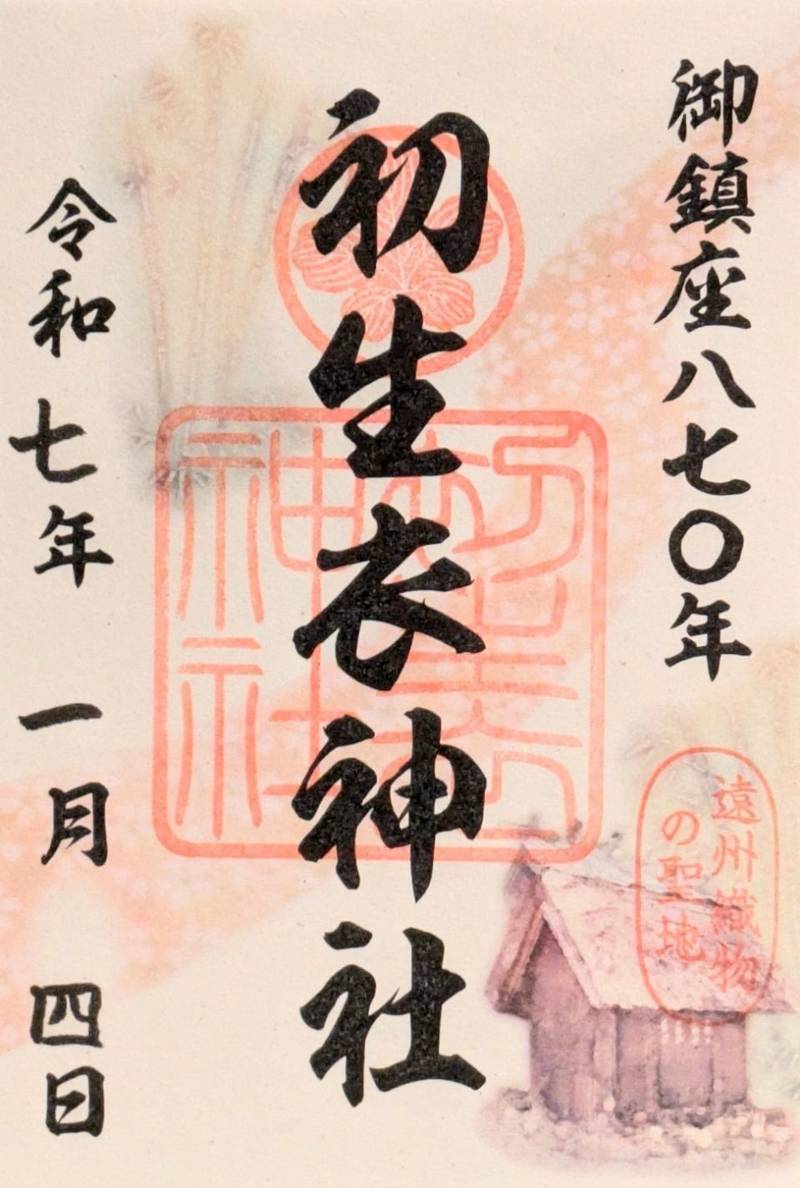 御鎮座八七〇年
初生衣神社
令和七年一月四日
遠州織物
の聖地
初生衣
神社